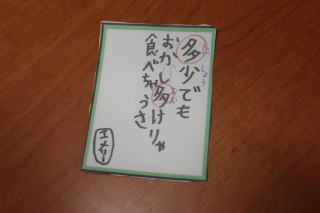 多少でも
おかし多けりゃ
食べちゃうさ
エメリー